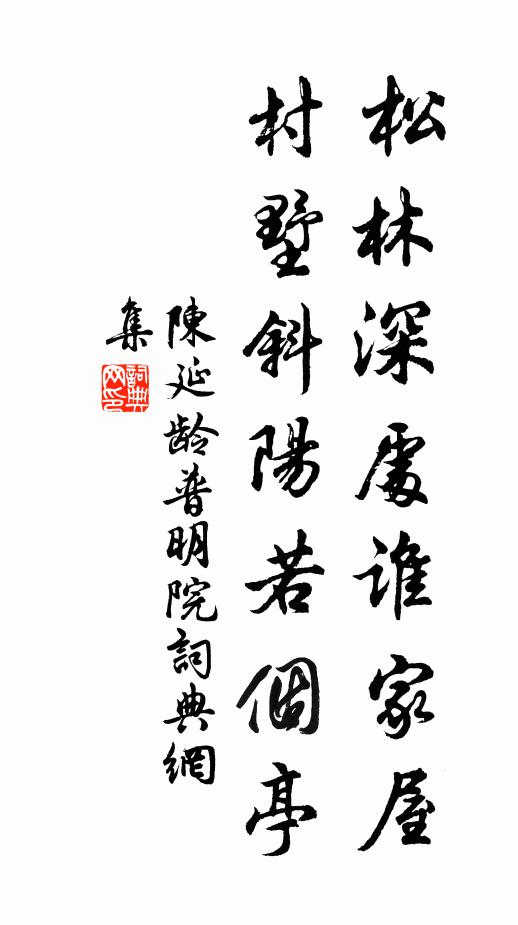 松林深處誰家屋
村墅斜陽若個亭
陳延龄普明院詞典網
集
詞典
网印